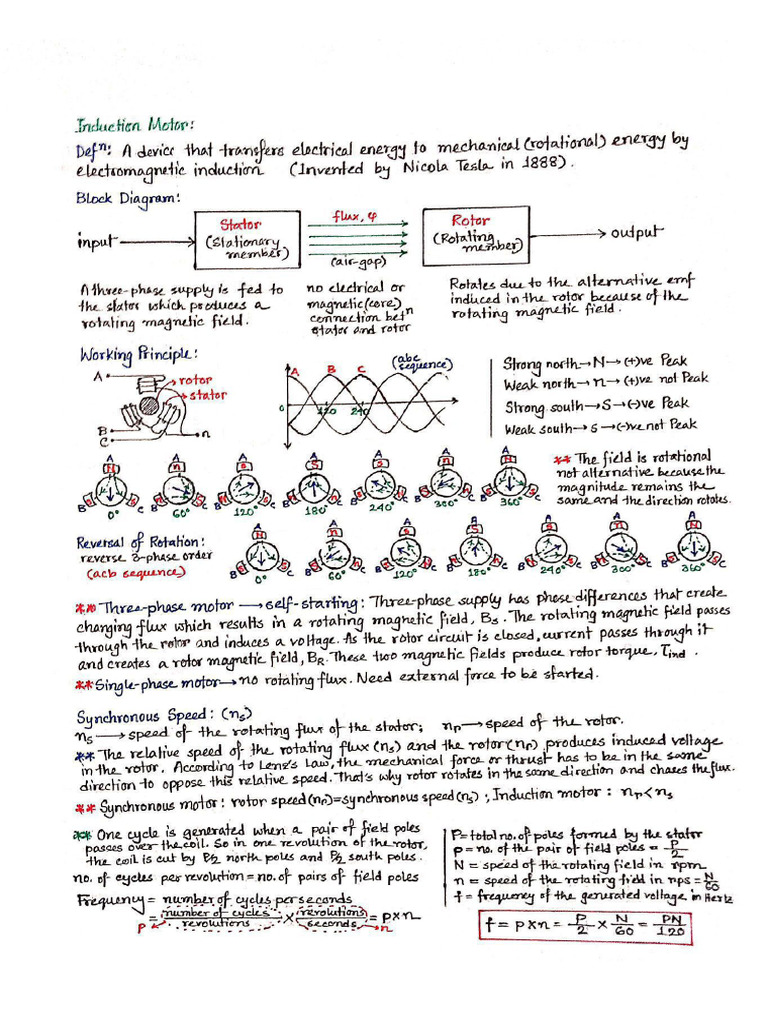 Induction Motor:
Defⁿ: A device that transfers electrical energy to mechanical (rotational) energy by
electromagnetic induction (Invented by Nicola Tesla in 1888).
Block Diagram:
input
Stator
(Stationary
member)
flux, φ
(air-gap)
Rotor
(Rotating
member)
output
A three-phase supply is fed to
the stator which produces a
rotating magnetic field.
no electrical or
magnetic (core)
connection betⁿ
stator and rotor
Rotates due to the alternative emf
induced in the rotor because of the
rotating magnetic field.
Working Principle:
A
rotor
stator
B
C
n
A B C (abc sequence)
0 120 240
Strong north → N → (+)ve Peak
Weak north → n → (+)ve not Peak
Strong south → S → (-)ve Peak
Weak south → s → (-)ve not Peak
0° 60° 120° 180° 240° 300° 360°
** The field is rotational
not alternative because the
magnitude remains the
same and the direction rotates.
Reversal of Rotation:
reverse 3-phase order
(acb sequence)
0° 60° 120° 180° 240° 300° 360°
** Three-phase motor → self-starting: Three-phase supply has phase differences that create
changing flux which results in a rotating magnetic field, Bs. The rotating magnetic field passes
through the rotor and induces a voltage. As the rotor circuit is closed, current passes through it
and creates a rotor magnetic field, BR. These two magnetic fields produce rotor torque, τind.
** Single-phase motor → no rotating flux. Need external force to be started.
Synchronous Speed: (ns)
ns → speed of the rotating flux of the stator; nr → speed of the rotor.
** The relative speed of the rotating flux (ns) and the rotor (nr) produces induced voltage
in the rotor. According to Lenz's law, the mechanical force or thrust has to be in the same
direction to oppose this relative speed. That's why rotor rotates in the same direction and chases the flux.
** Synchronous motor: rotor speed (nr) = synchronous speed (ns); Induction motor: nr < ns
** One cycle is generated when a pair of field poles
passes over the coil. So in one revolution of the rotor,
the coil is cut by P/2 north poles and P/2 south poles.
no. of cycles per revolution = no. of pairs of field poles
Frequency = number of cycles per seconds
= number of cycles / revolutions × revolutions / seconds = p × n
p n
P = total no. of poles formed by the stator
p = no. of the pair of field poles = P/2
N = speed of the rotating field in rpm
n = speed of the rotating field in rps = N/60
f = frequency of the generated voltage in Hertz
f = p × n = P/2 × N/60 = PN/120